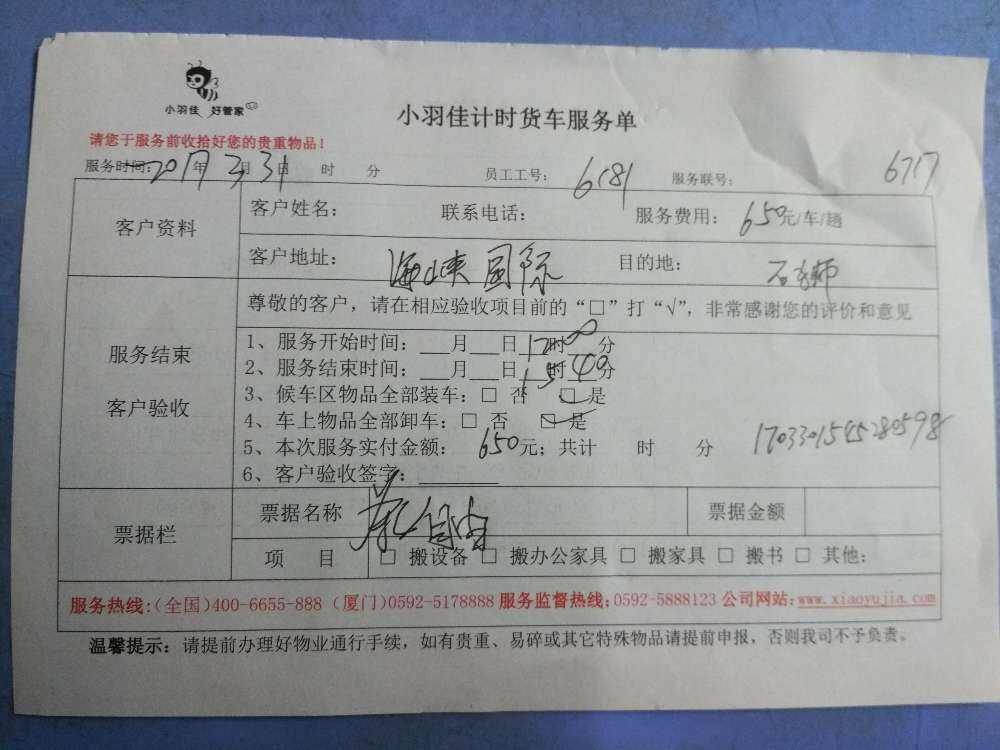 小羽佳 好管家
小羽佳计时货车服务单
请您于服务前收拾好您的贵重物品！
服务时间：2017年3月31日 时 分 员工工号：6181 服务联号：6717
客户资料
客户姓名： 联系电话： 服务费用：650元/车/趟
客户地址：海峡国际 目的地：石狮
尊敬的客户，请在相应验收项目前的“□”打“√”，非常感谢您的评价和意见
服务结束
客户验收
1、服务开始时间：___月___日12时00分
2、服务结束时间：___月___日15时40分
3、候车区物品全部装车：□ 否 ☑是
4、车上物品全部卸车：□ 否 ☑是
5、本次服务实付金额：650元；共计 时 分 1703301545280598
6、客户验收签字：
票据栏
票据名称 票据金额
项 目 □ 搬设备 □ 搬办公家具 □ 搬家具 □ 搬书 □ 其他：
服务热线：(全国)400-6655-888 (厦门)0592-5178888 服务监督热线：0592-5888123 公司网站：www.xiaoyujia.com
温馨提示：请提前办理好物业通行手续，如有贵重、易碎或其它特殊物品请提前申报，否则我司不予负责。